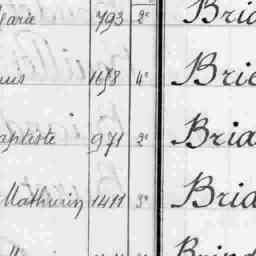 Marie 793 2e Bria
nus 1678 4e Brie
aptiste 971 2e Bria
Mathurin 1411 3e Brid